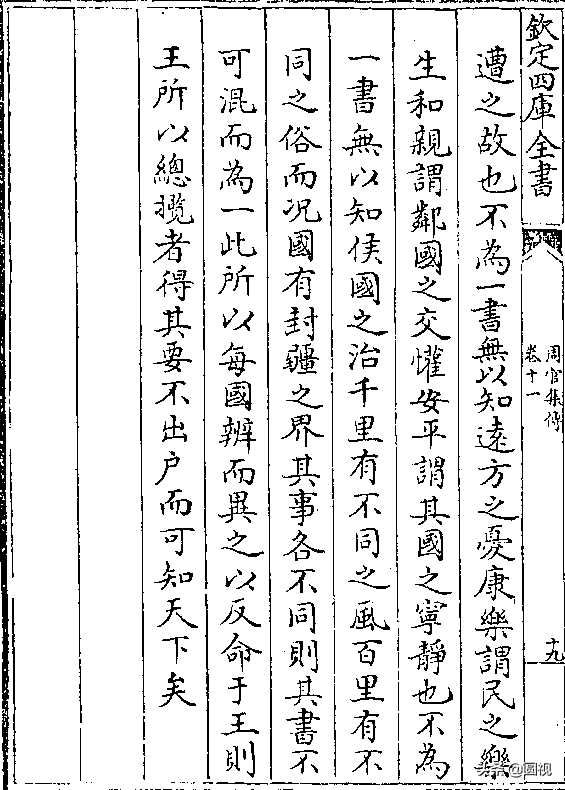 欽定四庫全書
周官集傳
卷十一
十九
遭之故也不為一書無以知逺方之憂康樂謂民之樂
生和親謂鄰國之交懽安平謂其國之寧靜也不為
一書無以知侯國之治千里有不同之風百里有不
同之俗而况國有封疆之界其事各不同則其書不
可混而為一此所以每國辨而異之以反命于王則
王所以總攬者得其要不出户而可知天下矣
头条@圆视